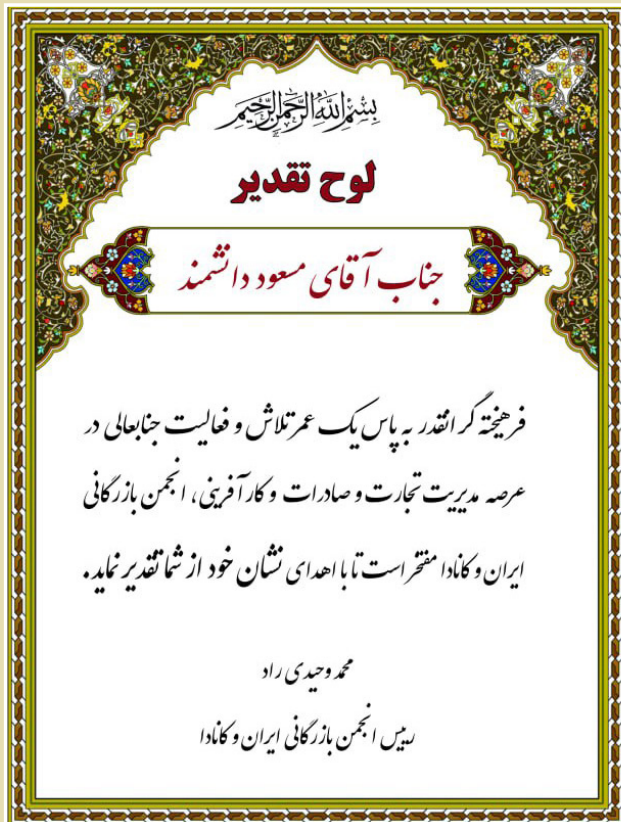 بسم الله الرحمن الرحیم
لوح تقدیر
جناب آقای مسعود دانشمند
فرهیخته گرانقدر به پاس یک عمر تلاش و فعالیت جنابعالی در
عرصه مدیریت تجارت و صادرات و کارآفرینی، انجمن بازرگانی
ایران و کانادا مفتخر است تا با اهدای نشان خود از شما تقدیر نماید.
محمد وحیدی راد
رییس انجمن بازرگانی ایران و کانادا